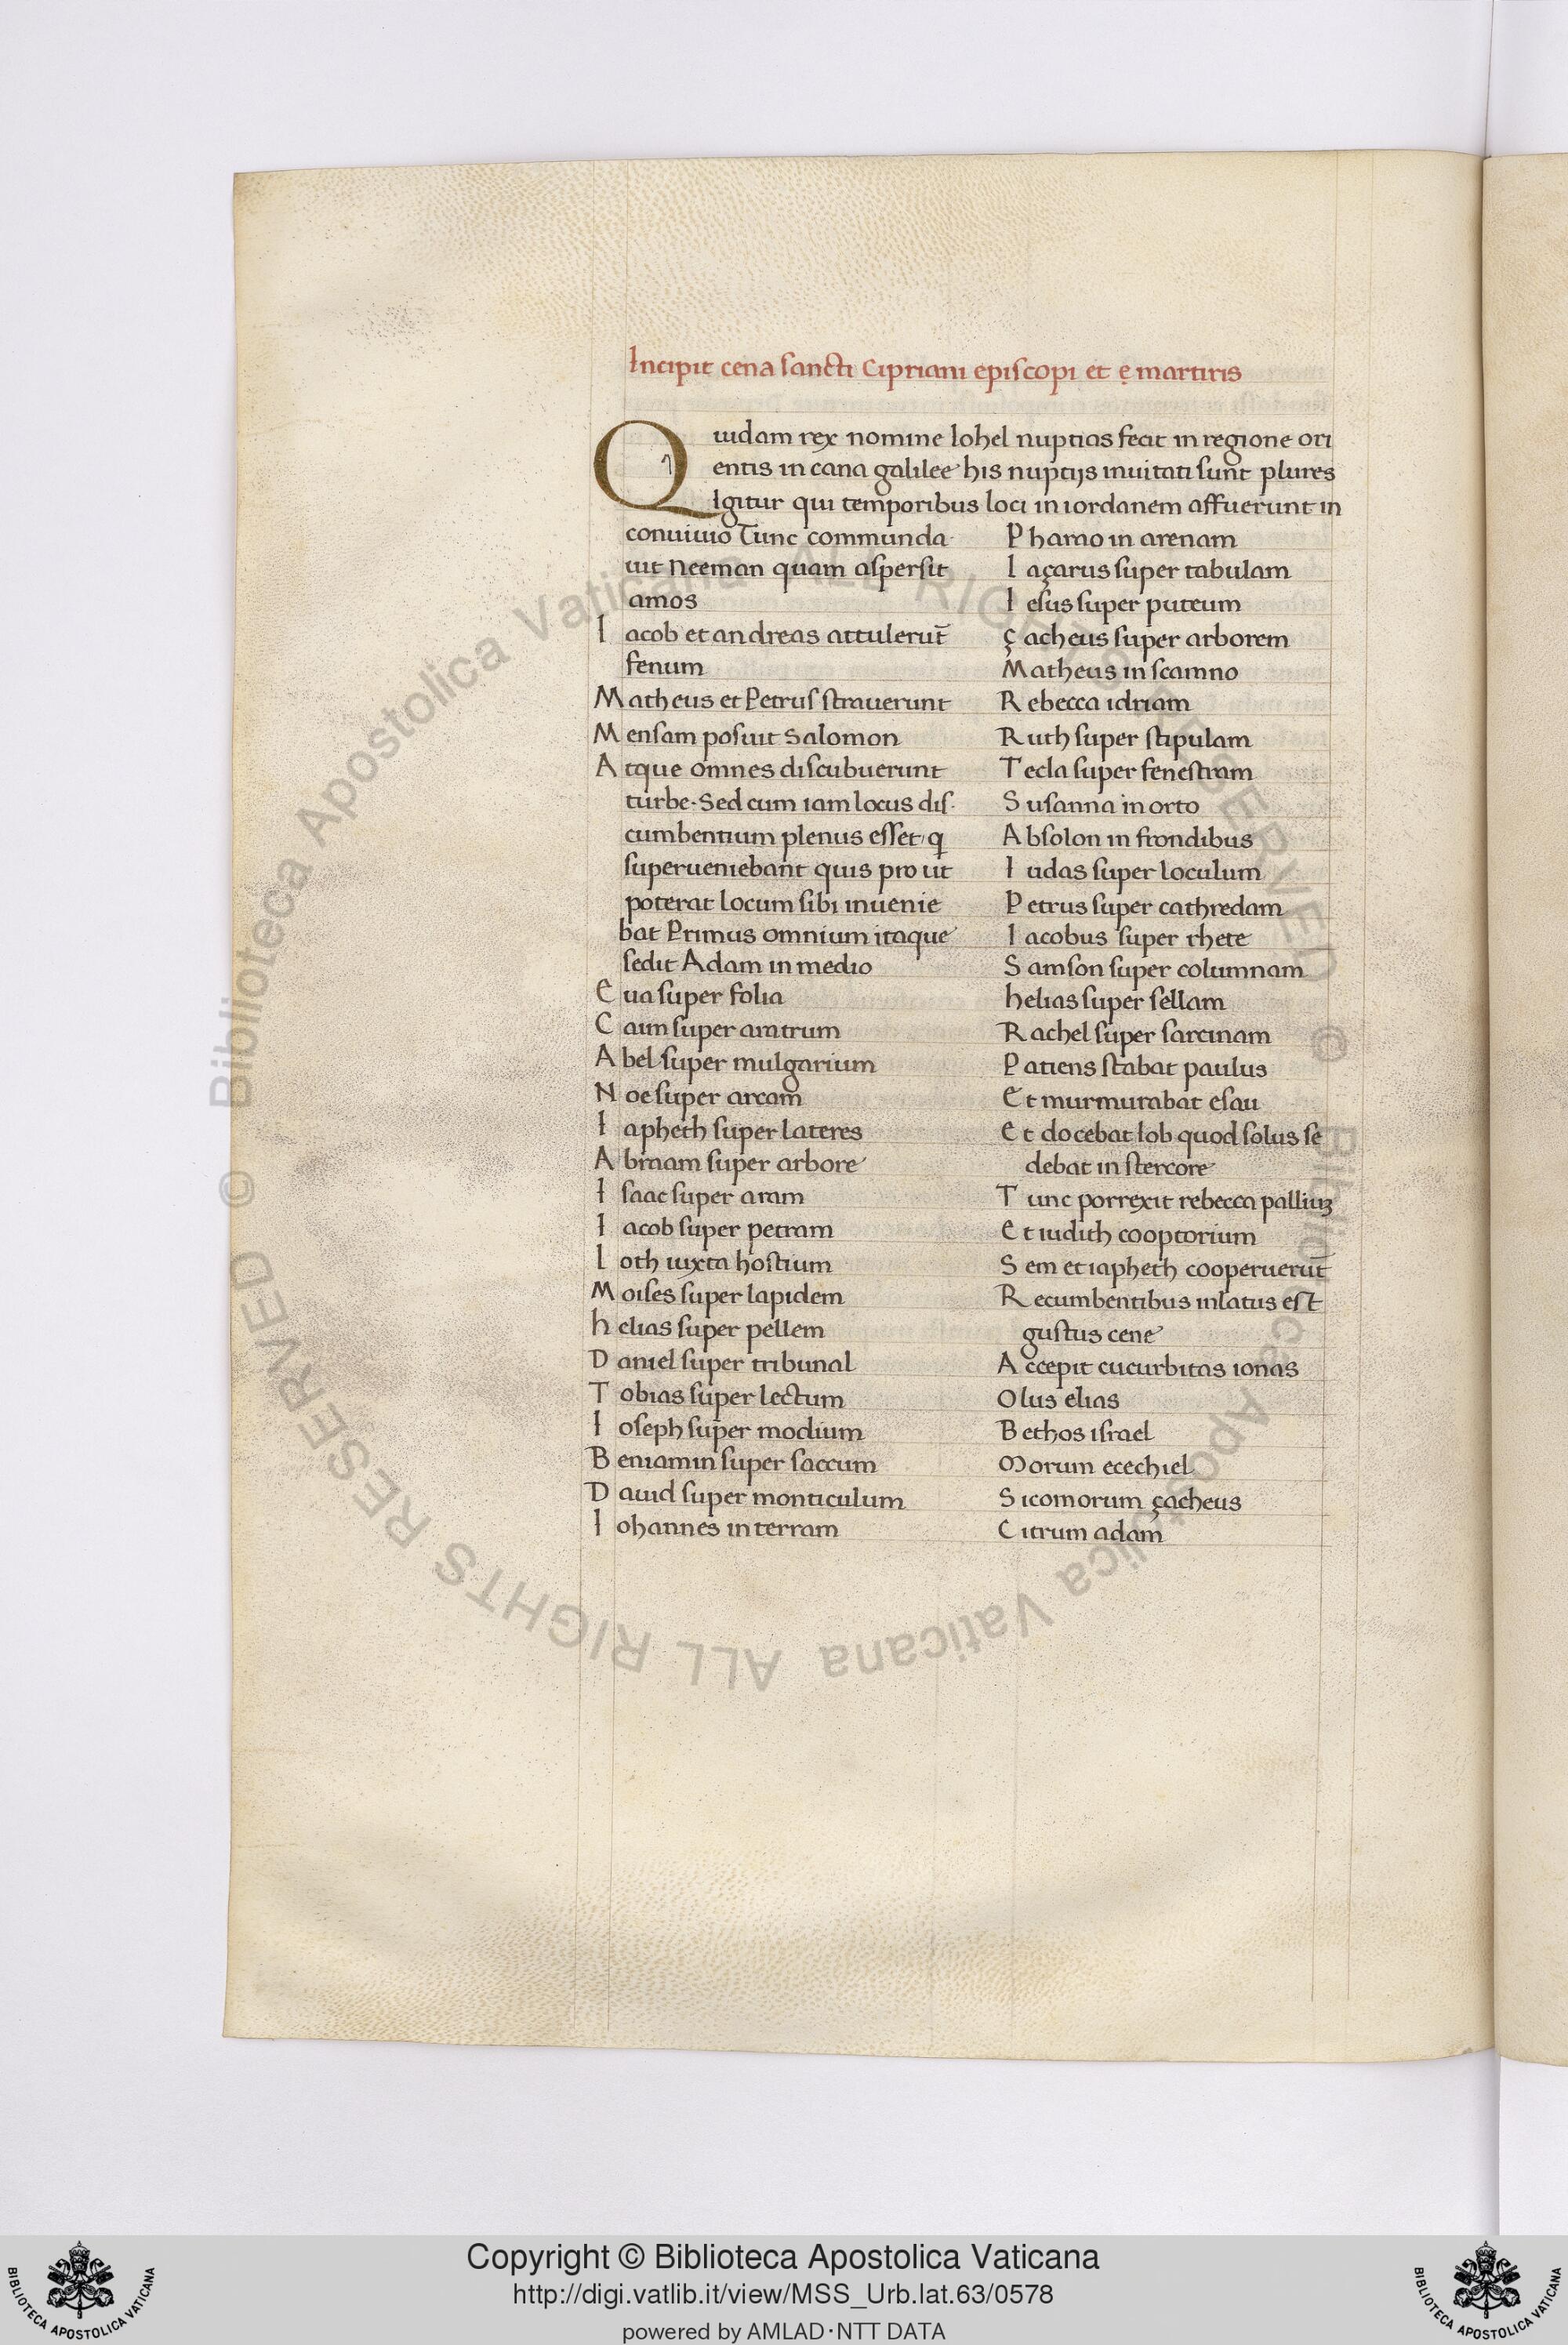 Incipit cena sancti Cipriani episcopi et ę martiris
Quidam rex nomine Iohel nuptias fecit in regione ori
entis in cana galilee his nuptijs inuitati sunt plures
Igitur qui temporibus loci in iordanem affuerunt in
conuiuio Tunc communda-
uit Neeman quam aspersit
amos
Iacob et andreas attulerut̄
fenum
Matheus et Petrus strauerunt
Mensam posuit Salomon
Atque omnes discubuerunt
turbe. Sed cum iam locus dis-
cumbentium plenus esset, q̨
superueniebant quis pro ut
poterat locum sibi inuenie
bat Primus omnium itaque
sedit Adam in medio
Eua super folia
Caim super aratrum
Abel super mulgarium
Noe super arcam
Iapheth super lateres
Abraam super arbore
Isaac super aram
Iacob super petram
Loth iuxta hostium
Moises super lapidem
helias super pellem
Daniel super tribunal
Tobias super lectum
Ioseph super modium
Beniamin super saccum
Dauid super monticulum
Iohannes in terram
Pharao in arenam
Laçarus super tabulam
Iesus super puteum
çacheus super arborem
Matheus in scamno
Rebecca idriam
Ruth super stipulam
Tecla super fenestram
Susanna in orto
Absolon in frondibus
Iudas super loculum
Petrus super cathredam
Iacobus super rhete
Samson super columnam
helias super sellam
Rachel super sarcinam
Patiens stabat paulus
Et murmurabat esau
Et docebat Iob quod solus se
debat in stercore
Tunc porrexit rebecca palliuꝫ
Et iudith cooptorium
Sem et iapheth cooperuerut̄
Recumbentibus inlatus est
gustus cene
Accepit cucurbitas ionas
Olus elias
Bethos israel
Morum ecechiel
Sicomorum çacheus
Citrum adam
Copyright © Biblioteca Apostolica Vaticana
http://digi.vatlib.it/view/MSS_Urb.lat.63/0578
powered by AMLAD·NTT DATA
BIBLIOTECA APOSTOLICA VATICANA
BIBLIOTECA APOSTOLICA VATICANA
© Biblioteca Apostolica Vaticana ALL RIGHTS RESERVED © Biblioteca Apostolica Vaticana ALL RIGHTS RESERVED